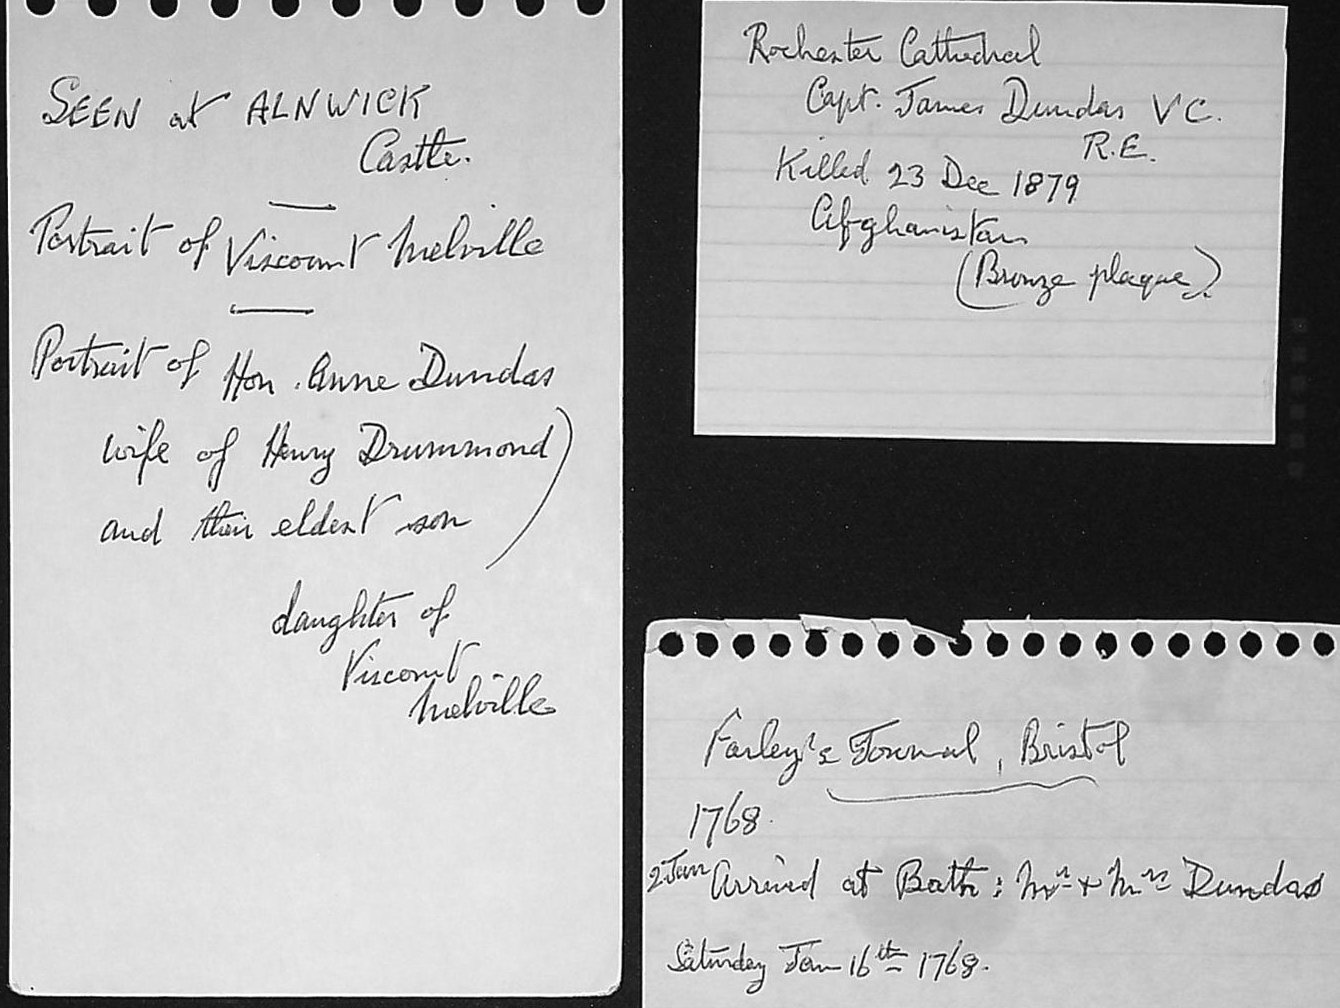 SEEN at ALNWICK
Castle.
Portrait of Viscount Melville
Portrait of Hon. Anne Dundas
wife of Henry Drummond)
and their eldest son
daughter of
Viscount
Melville
Rochester Cathedral
Capt. James Dundas VC.
R.E.
Killed 23 Dec 1879
Afghanistan
(Bronze plaque).
Farley's Journal, Bristol
1768.
2 Jan Arrived at Bath: Mr + Mrs Dundas
Saturday Jan 16th 1768.